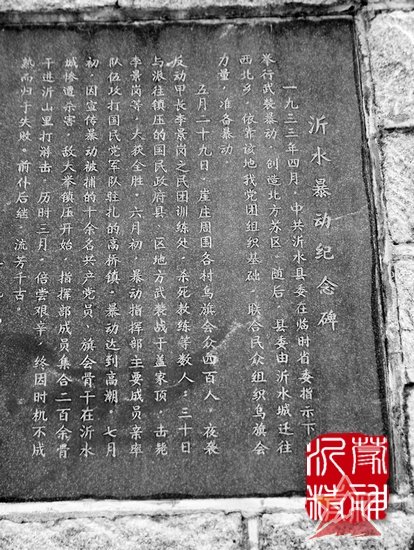 沂水暴动纪念碑
一九三三年四月，中共沂水县委在临时省委指示下
举行武装暴动，创造北方苏区。随后，县委由沂水城迁往
西北乡，依靠该地我党团组织基础，联合民众组织乌旗会
力量，准备暴动
五月二十九日，崖庄周围各村乌旗会众四百人，夜袭
反动甲长李景岗之民团训练处，杀死教练等数人；三十日
与派往镇压的国民政府县、区地方武装战于盖家顶，击毙
李景岗等，大获全胜。六月初，暴动指挥部主要成员亲率
队伍攻打国民党军队驻扎的高桥镇，暴动达到高潮。七月
初，因宣传暴动被捕的十余名共产党员、旗会骨干在沂水
城惨遭杀害，敌大举镇压开始，指挥部成员集合二百余骨
干进沂山里打游击，历时三月，倍尝艰辛，终因时机不成
熟而归于失败。前仆后继，流芳千古。